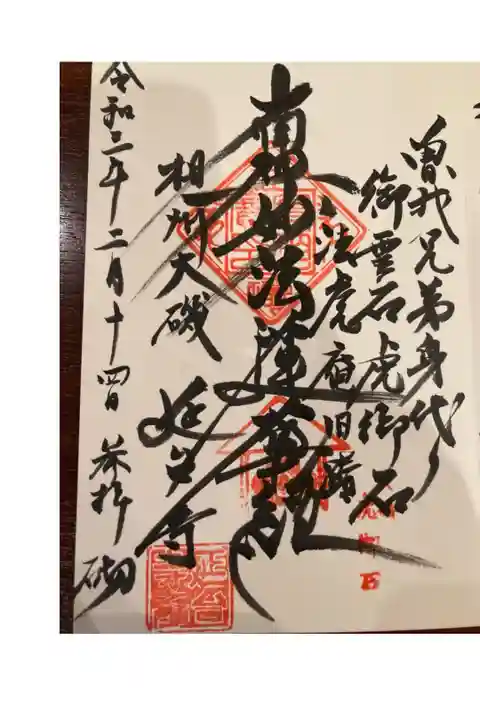 曽我兄弟身代り
御霊石虎御石
法虎庵旧蹟
南無妙法蓮華経
相州大磯
延台寺
令和二年二月十四日 参拝 砌
虎御石